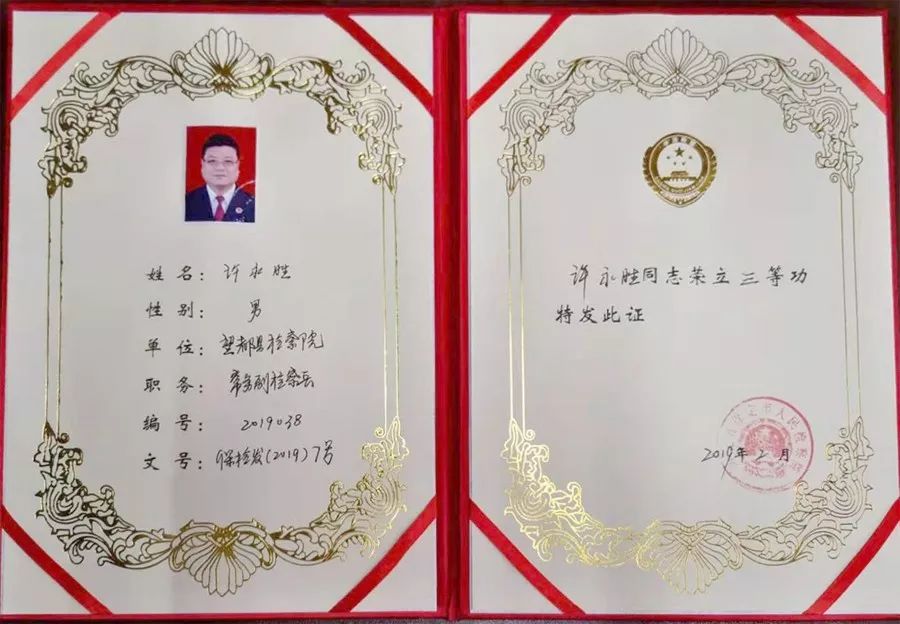 姓名：许永胜
性别：男
单位：望都县检察院
职务：常务副检察长
编号：2019038
文号：保检发(2019)7号
许永胜同志荣立三等功
特发此证
2019年2月